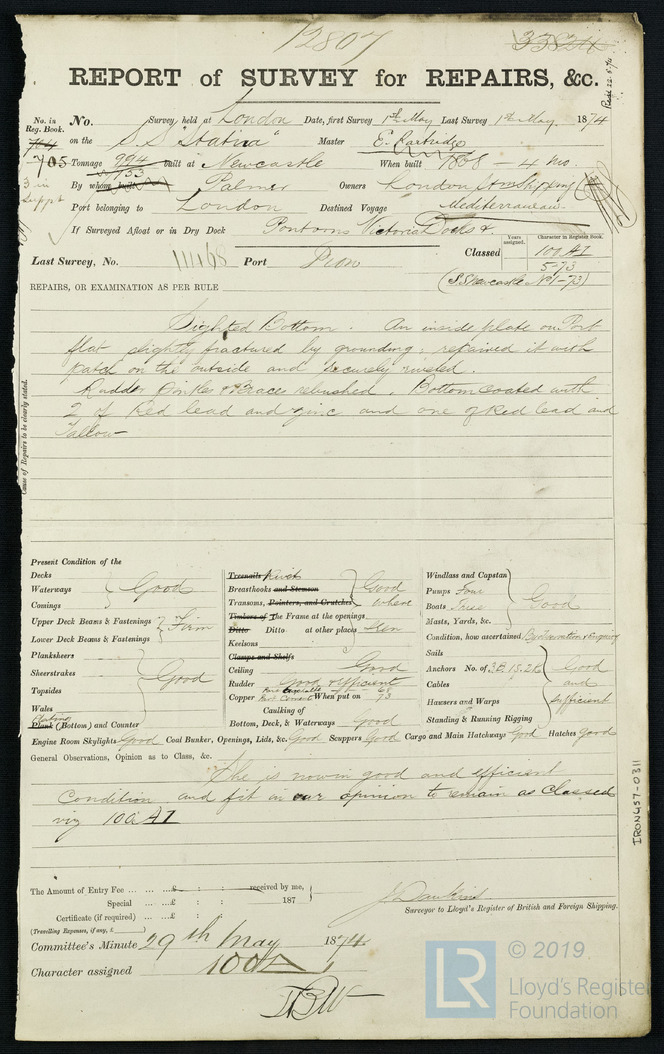 12807
33824
REPORT of SURVEY for REPAIRS, &c.
No. in Reg. Book.
No. Survey held at London Date, first Survey 1st May Last Survey 1st May 1874
704
705
on the S.S. "Statira" Master E. Partridge
Tonnage 994 built at Newcastle When built 1868 - 4 mo.
753
By whom built Palmer Owners London Stm Shipping
3 in
Suppt
Port belonging to London Destined Voyage Mediterranean
If Surveyed Afloat or in Dry Dock Pontoons Victoria Docks
Last Survey, No. 11168 Port Classed
Years assigned.
Character in Register Book.
100 A1
5-73
(S.S. Newcastle No 1-73)
REPAIRS, OR EXAMINATION AS PER RULE
Sighted Bottom. An inside plate on Port
flat slightly fractured by grounding; repaired it with
patch on the outside and securely riveted.
Rudder Pintles & Braces rebushed. Bottom coated with
2 of Red lead and zinc and one of Red lead and
Tallow
Cause of Repairs to be clearly stated.
Present Condition of the
Decks
Waterways Good
Comings
Upper Deck Beams & Fastenings
Firm
Lower Deck Beams & Fastenings
Planksheers
Sheerstrakes Good
Topsides
Wales
Plating
Plank (Bottom) and Counter
Treenails Rivets
Breasthooks and Stemson Good
Transoms, Pointers, and Crutches where
Timbers of The Frame at the openings
Ditto Ditto at other places seen
Keelsons
Clamps and Shelfs
Ceiling Good
Rudder Good & efficient
Copper Part Cement When put on 73
Caulking of
Bottom, Deck, & Waterways Good
Windlass and Capstan
Pumps Four
Boats Good
Masts, Yards, &c.
Condition, how ascertained,
Sails
Anchors No. of 3B. 1S. 2K Good
Cables and
Hawsers and Warps sufficient
Standing & Running Rigging
Engine Room Skylights Good Coal Bunker, Openings, Lids, &c. Good Scuppers Good Cargo and Main Hatchways Good Hatches good
General Observations, Opinion as to Class, &c.
She is now in good and efficient
Condition and fit in our opinion to remain as Classed
viz 100 A1
IRON457-0311
The Amount of Entry Fee ... ... ...£ : : received by me,
Special ... ...£ : : 187
Certificate (if required) ... ...£ : :
(Travelling Expenses, if any, £ )
Surveyor to Lloyd's Register of British and Foreign Shipping.
Committee's Minute 29th May 1874
Character assigned 100A1
© 2019
LR
Lloyd's Register
Foundation